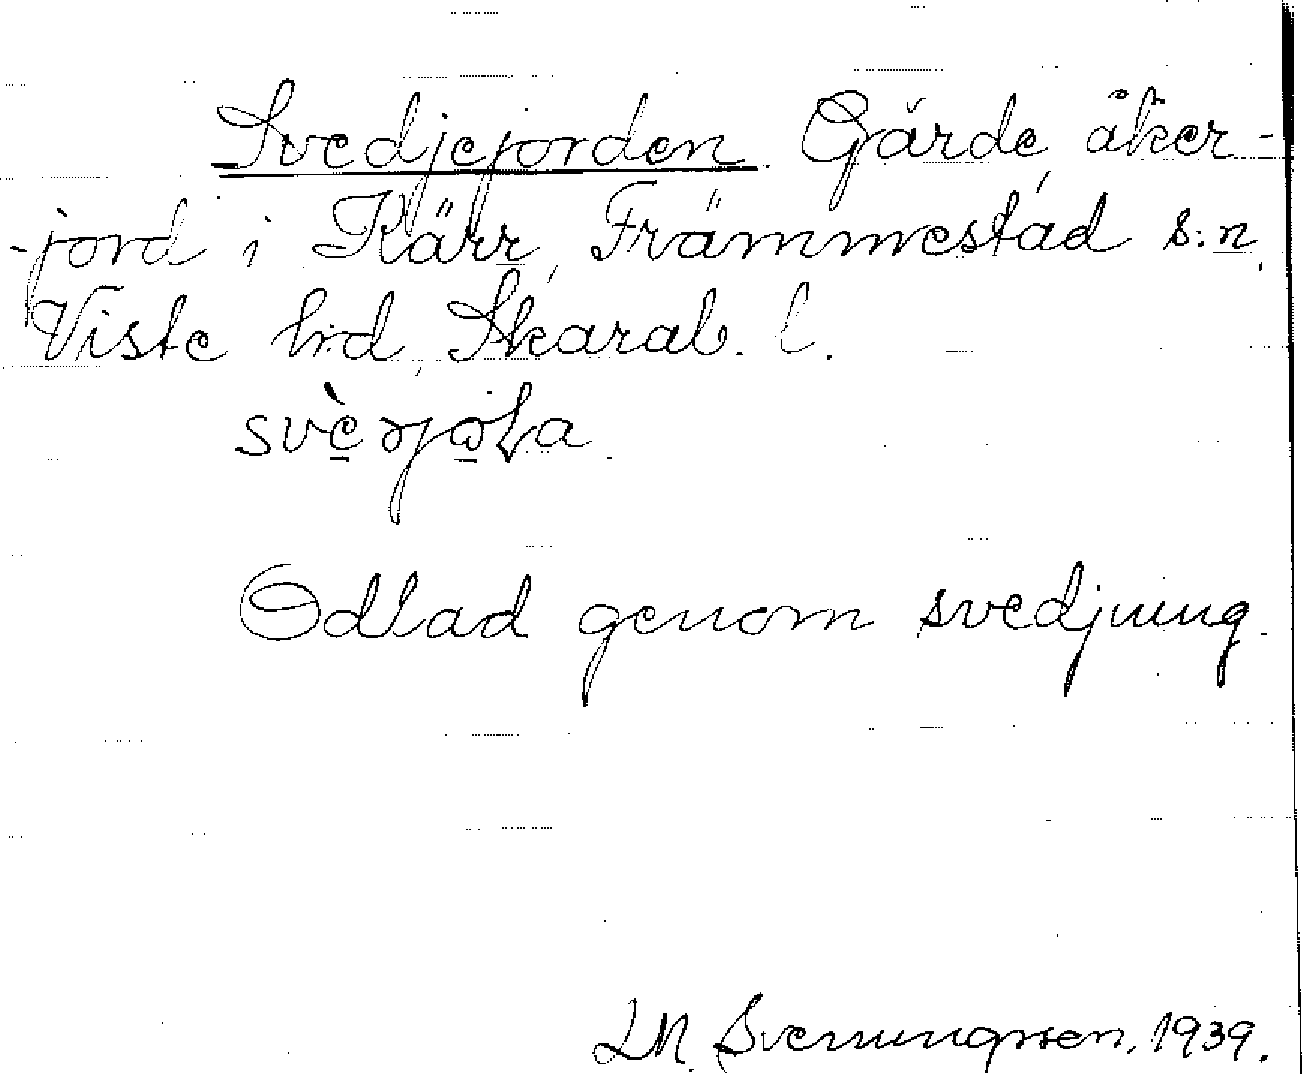 Svedjejorden. Gärde åker-
-jord i Kärr, Främmestad s:n,
Viste hd, Skarab. l.
Odlad genom svedjning.
LN. Svenungsson, 1939.